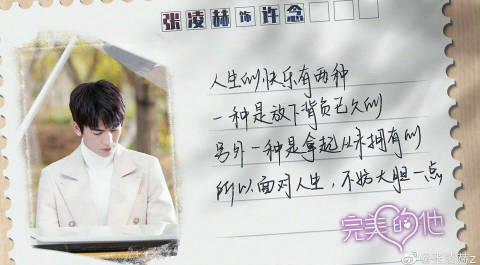 张凌赫 饰 许念
人生的快乐有两种
一种是放下背负已久的
另外一种是拿起从未拥有的
所以面对人生，不妨大胆一点
完美的他